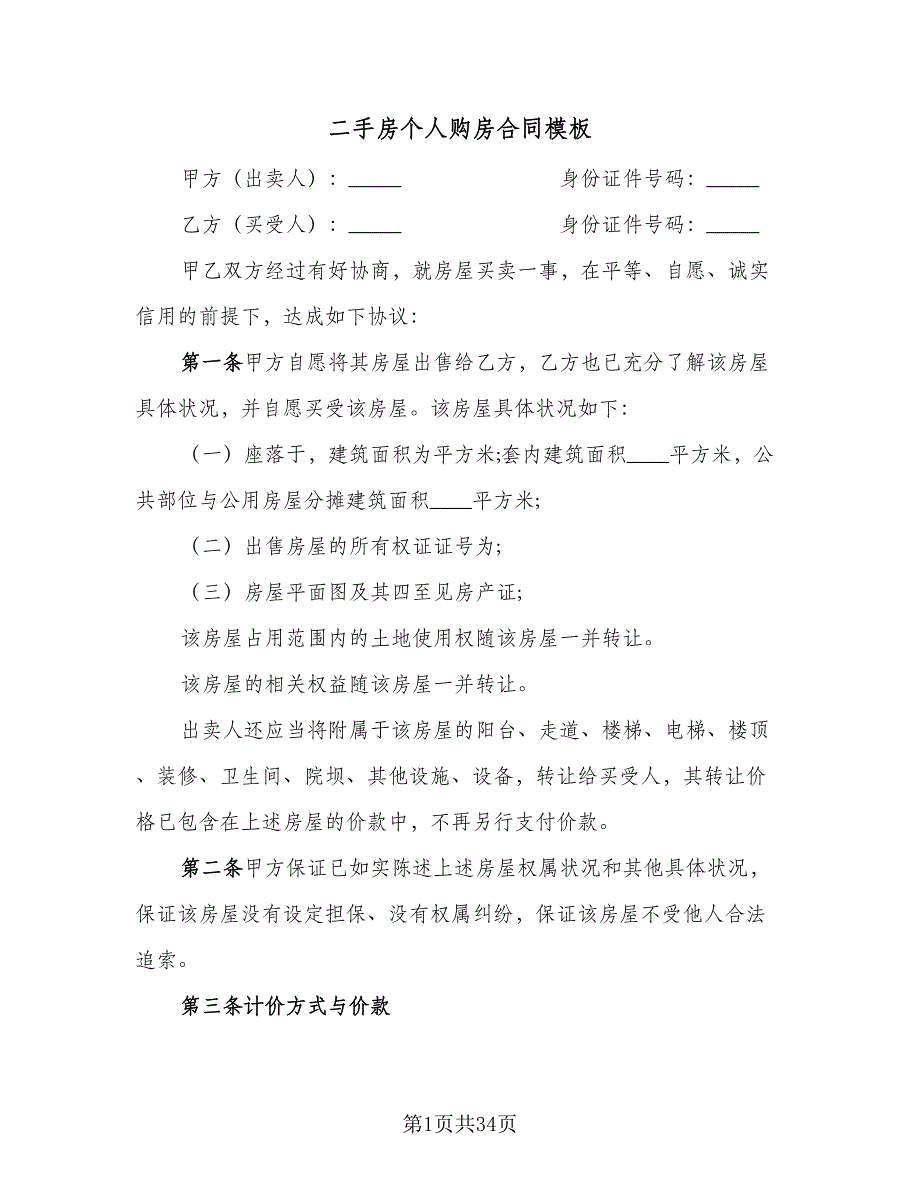 二手房个人购房合同模板
甲方（出卖人）：_____ 身份证件号码：_____
乙方（买受人）：_____ 身份证件号码：_____
甲乙双方经过有好协商，就房屋买卖一事，在平等、自愿、诚实
信用的前提下，达成如下协议：
第一条甲方自愿将其房屋出售给乙方，乙方也已充分了解该房屋
具体状况，并自愿买受该房屋。该房屋具体状况如下：
（一）座落于，建筑面积为平方米;套内建筑面积____平方米，公
共部位与公用房屋分摊建筑面积____平方米;
（二）出售房屋的所有权证证号为;
（三）房屋平面图及其四至见房产证;
该房屋占用范围内的土地使用权随该房屋一并转让。
该房屋的相关权益随该房屋一并转让。
出卖人还应当将附属于该房屋的阳台、走道、楼梯、电梯、楼顶
、装修、卫生间、院坝、其他设施、设备，转让给买受人，其转让价
格已包含在上述房屋的价款中，不再另行支付价款。
第二条甲方保证已如实陈述上述房屋权属状况和其他具体状况，
保证该房屋没有设定担保、没有权属纠纷，保证该房屋不受他人合法
追索。
第三条计价方式与价款
第1页共34页